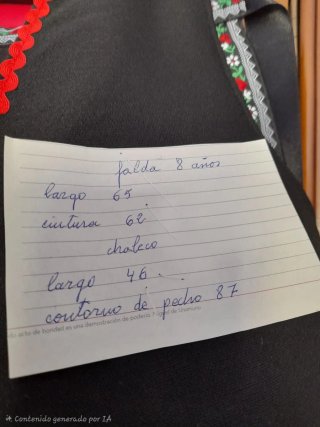 falda 8 años
largo 65
cintura 62
chaleco
largo 46
contorno de pecho 87
acto de bondad es una demostración de poderío. Miguel de Unamuno
Contenido generado por IA